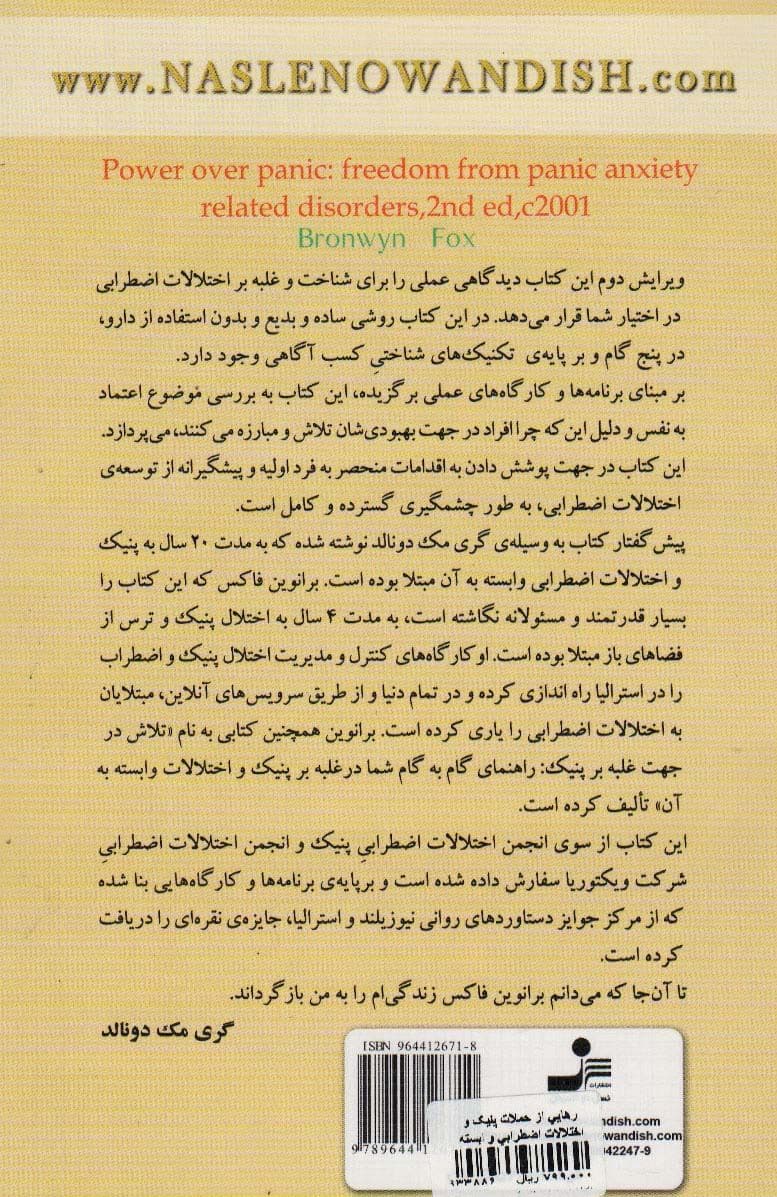 www.NASLENOWANDISH.com
Power over panic: freedom from panic anxiety
related disorders,2nd ed,c2001
Bronwyn Fox
ویرایش دوم این کتاب دیدگاهی عملی را برای شناخت و غلبه بر اختلالات اضطرابی
در اختیار شما قرار می‌دهد. در این کتاب روشی ساده و بدیع و بدون استفاده از دارو،
در پنج گام و بر پایه‌ی تکنیک‌های شناختیِ کسب آگاهی وجود دارد.
بر مبنای برنامه‌ها و کارگاه‌های عملی برگزیده، این کتاب به بررسی موضوع اعتماد
به نفس و دلیل این که چرا افراد در جهت بهبودی‌شان تلاش و مبارزه می‌کنند، می‌پردازد.
این کتاب در جهت پوشش دادن به اقدامات منحصر به فرد اولیه و پیشگیرانه از توسعه‌ی
اختلالات اضطرابی، به طور چشمگیری گسترده و کامل است.
پیش گفتار کتاب به وسیله‌ی گری مک دونالد نوشته شده که به مدت ۲۰ سال به پنیک
و اختلالات اضطرابی وابسته به آن مبتلا بوده است. برانوین فاکس که این کتاب را
بسیار قدرتمند و مسئولانه نگاشته است، به مدت ۴ سال به اختلال پنیک و ترس از
فضاهای باز مبتلا بوده است. او کارگاه‌های کنترل و مدیریت اختلال پنیک و اضطراب
را در استرالیا راه اندازی کرده و در تمام دنیا و از طریق سرویس‌های آنلاین، مبتلایان
به اختلالات اضطرابی را یاری کرده است. برانوین همچنین کتابی به نام «تلاش در
جهت غلبه بر پنیک: راهنمای گام به گام شما درغلبه بر پنیک و اختلالات وابسته به
آن» تألیف کرده است.
این کتاب از سوی انجمن اختلالات اضطرابیِ پنیک و انجمن اختلالات اضطرابیِ
شرکت ویکتوریا سفارش داده شده است و برپایه‌ی برنامه‌ها و کارگاه‌هایی بنا شده
که از مرکز جوایز دستاوردهای روانی نیوزیلند و استرالیا، جایزه‌ی نقره‌ای را دریافت
کرده است.
تا آن‌جا که می‌دانم برانوین فاکس زندگی‌ام را به من بازگرداند.
گری مک دونالد
ISBN 964412671-8
9 789644 1
انتشارات
ndish.com
owandish.com
042247-9
رهایی از حملات پنیک و
اختلالات اضطرابی وابسته
۹۳۳۸۸۶ ۷۹۹.۰۰۰ ریال